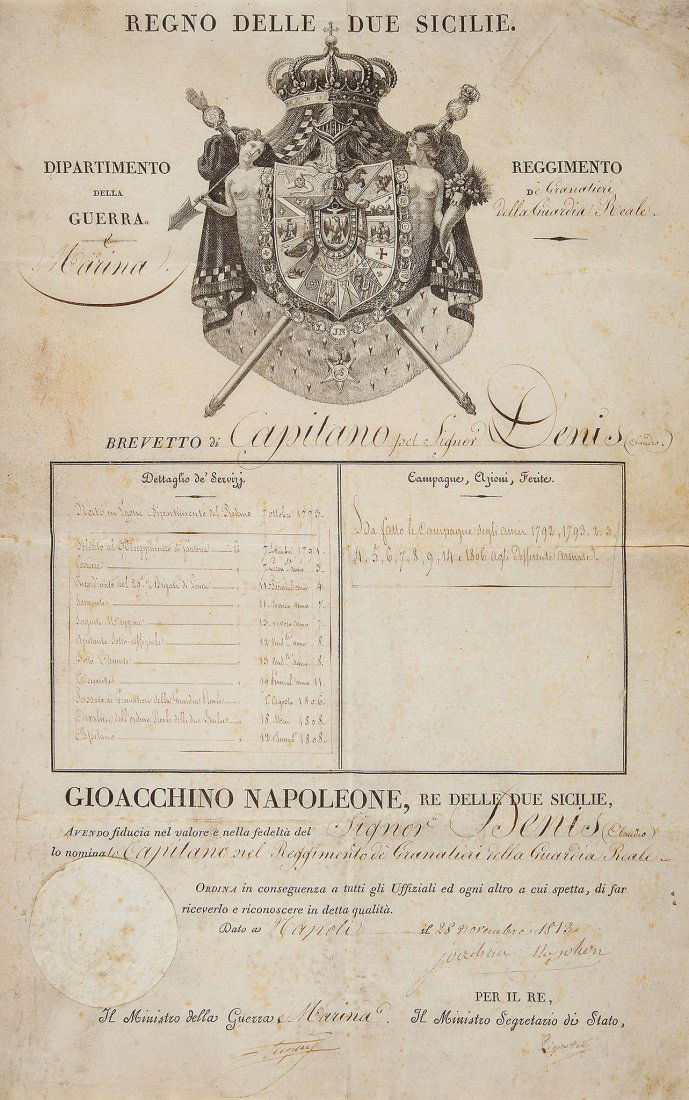 REGNO DELLE DUE SICILIE.
DIPARTIMENTO
DELLA
GUERRA.
e
Marina
REGGIMENTO
De' Granatieri
della Guardia Reale.
JN
BREVETTO di Capitano pel Signor Denis (Claudio)
Dettaglio de' Servizj.
Nato in Lione Dipartimento del Rodano 7 ottobre 1773.
Soldato al Reggimento di 1791.
3.
Incardinato nel Brigata di Linea 11 anno 4.
Sergente 11 nevoso anno 7.
Sergente Maggiore 13 nevoso anno 7.
Ajutante Sotto-uffiziale 12 anno 8.
Sotto Tenente 13 anno 8.
Tenente anno 11.
Passato a' Granatieri della Guardia Reale 1° Agosto 1806.
Cavaliere dell'ordine Reale delle due Sicilie 18 1808.
Capitano 12 1808.
Campagne, Azioni, Ferite.
Ha fatto le Campagne degli anni 1792, 1793, 2, 3,
4, 5, 6, 7, 8, 9, 14 e 1806 agli differenti armate.
GIOACCHINO NAPOLEONE, RE DELLE DUE SICILIE,
AVENDO fiducia nel valore e nella fedeltà del Signor Denis (Claudio)
lo nomina Capitano nel Reggimento de' Granatieri della Guardia Reale
ORDINA in conseguenza a tutti gli Uffiziali ed ogni altro a cui spetta, di far
riceverlo e riconoscere in detta qualità.
Dato a Napoli il 28 novembre 1813.
Joachim Napoleon
PER IL RE,
Il Ministro della Guerra e Marina Il Ministro Segretario di Stato,